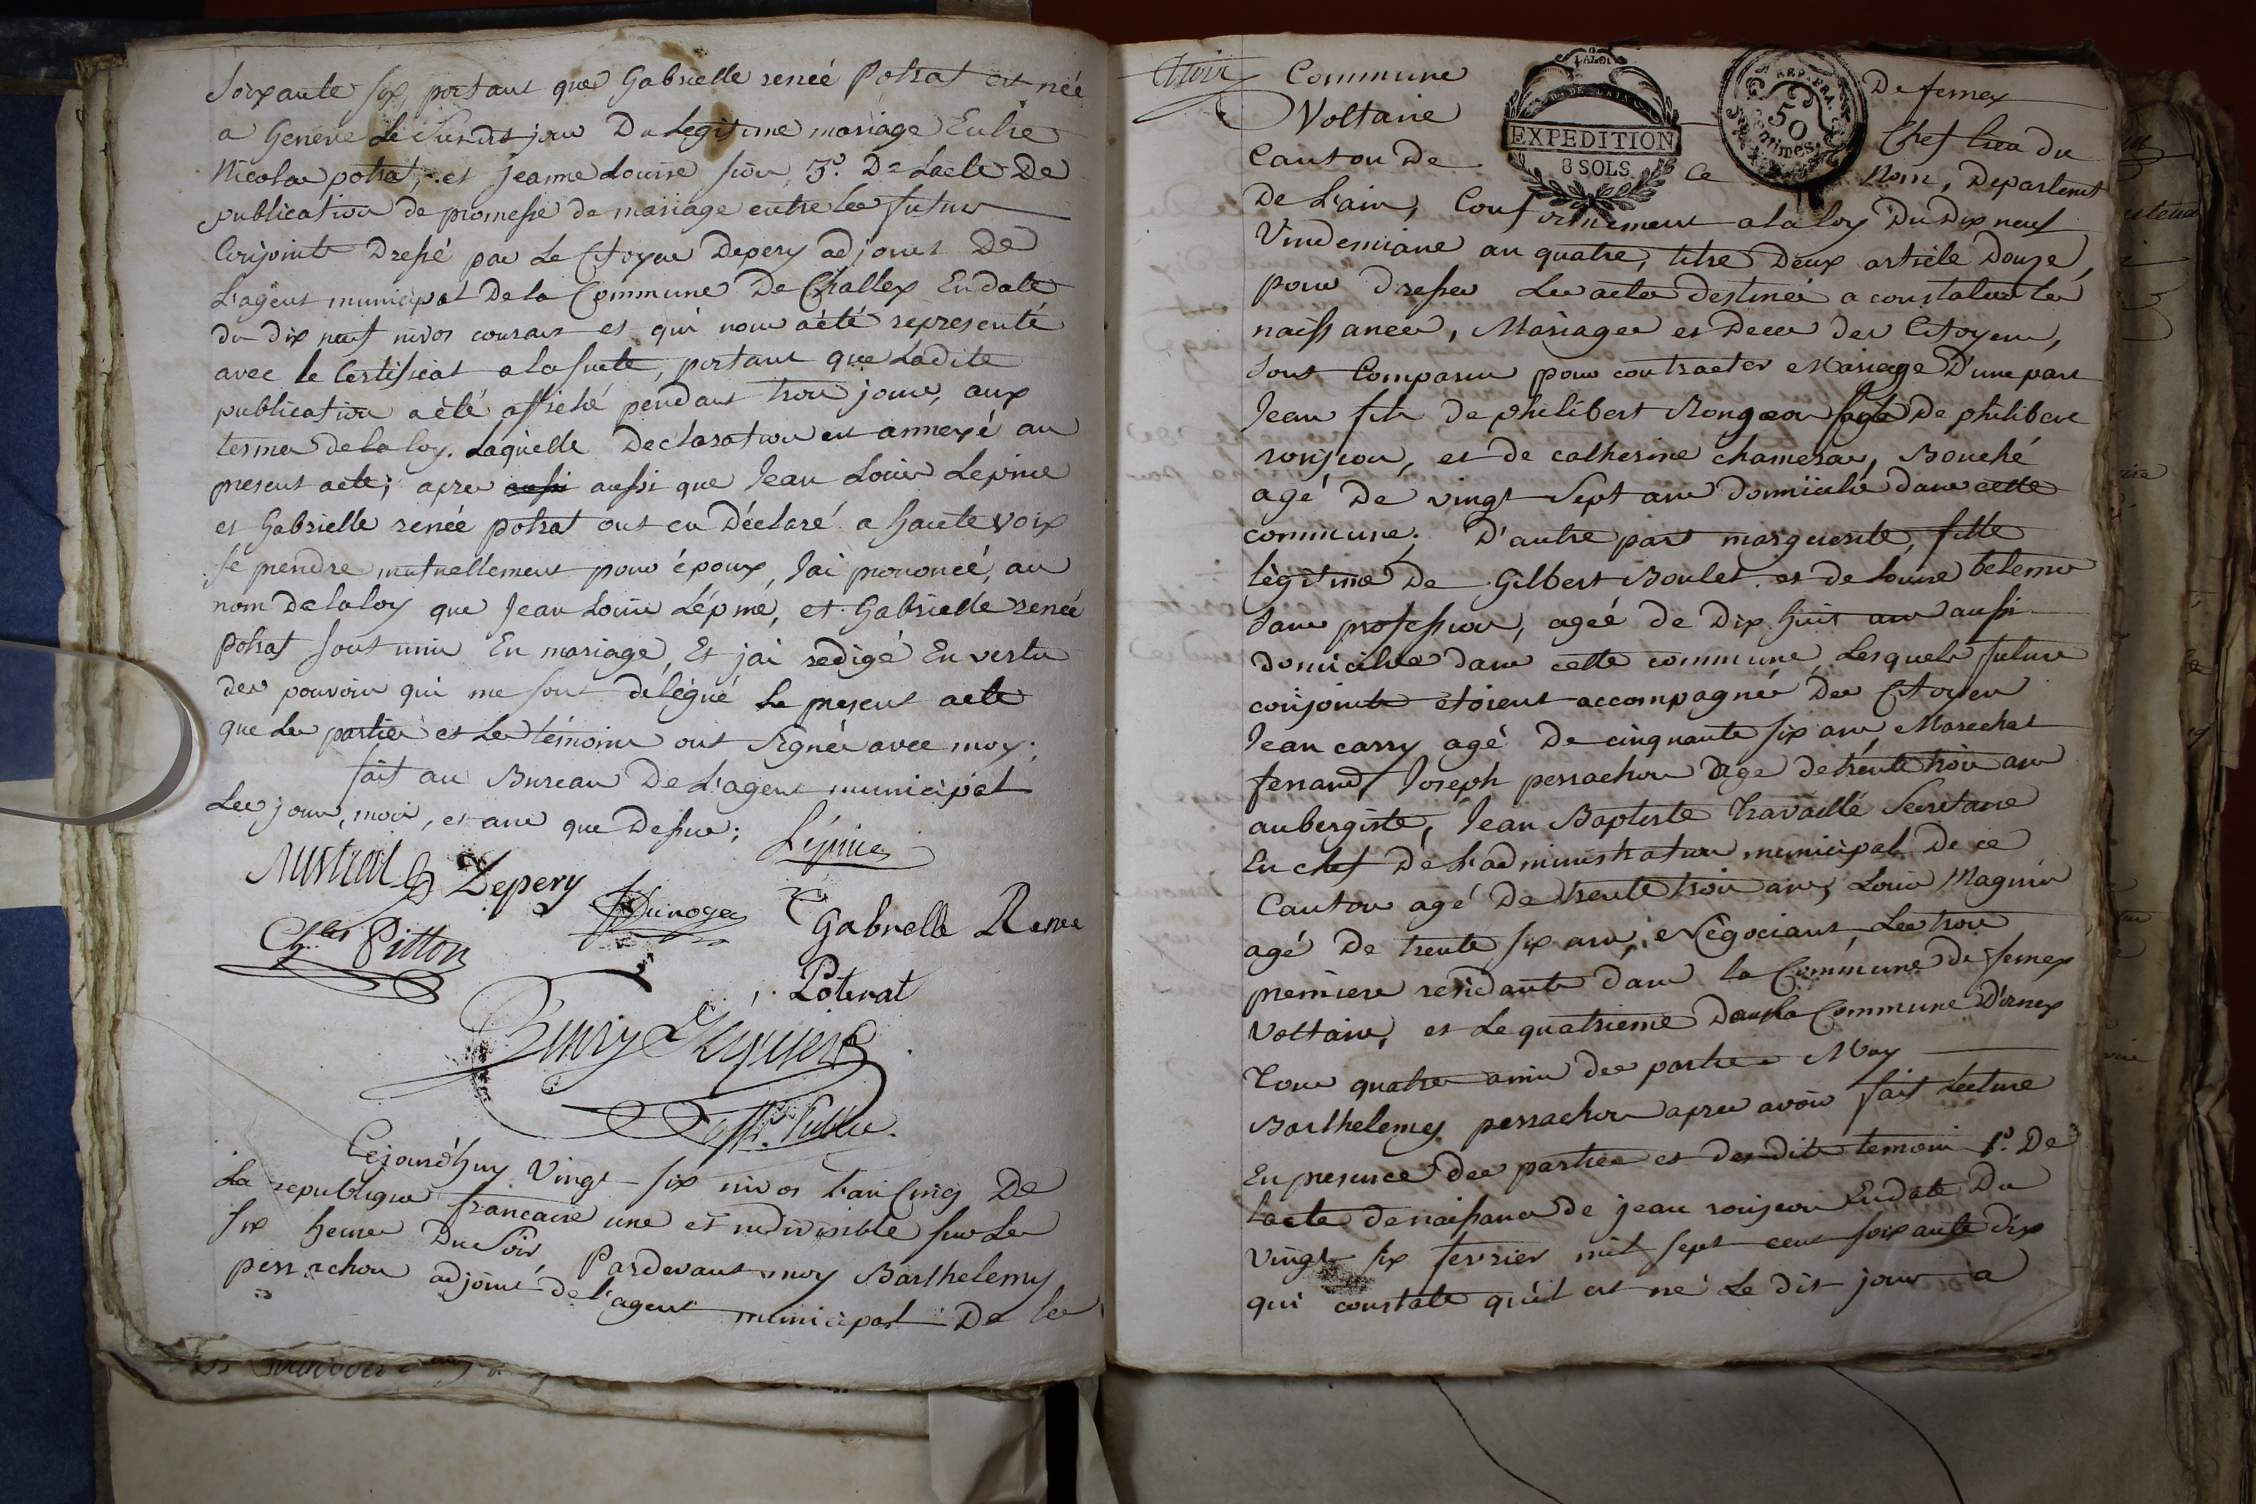 soixante six, portant que Gabrielle renée Potrat est née
a Genève le susdit jour Du Legitime mariage Entre
Nicolas potrat, et jeanne Louise 3°. De Lacte De
publication de promesse de mariage entre les futurs
Conjoints Dressé par Le Citoyen Depery adjoint De
L'agent municipal De la Commune De Challex En date
du dix neuf nivos courant et qui nous a été représenté
avec le Certificat a la suite, portant que Ladite
publication a été affiché pendant trois jours, aux
termes de la loy. Laquelle Declaration est annexé au
present acte; apres aussi aussi que Jean Louis Lépine
et Gabrielle renée potrat ont eu Déclaré a haute voix
se prendre mutuellement pour époux, J'ai prononcé, au
nom de la loy que Jean Louis Lépine, et Gabrielle renée
Potrat sont unis En mariage, Et j'ai redigé En vertu
des pouvoirs qui me sont délégué Le present acte
que les parties et les témoins ont signés avec moy;
fait au Bureau De L'agent municipal
Les jour, mois, et ans que Dessus;
Lépine
Depery
Gabrielle Renee
Ch.les Pitton
Poterat
off. Public.
Cejourd'huy Vingt six nivos L'an Cinq De
La republique francaise une et indivisible sur Les
six heures Du Soir, Pardevant moy Barthelemy
perrachon adjoint de l'agent municipal De la
Commune De fernex
Voltaire Chef lieu du
Canton De Ce Nom, Departemt
EXPEDITION
8 SOLS
50
De L'ain, Conformement a la loy Du Dix neuf
Vindemiaire an quatre, titre Deux article Douze,
pour dresser Les actes destinés a constater les
naissances, Mariages et Deces des Citoyens,
sont Comparus pour contracter Mariage D'une part
Jean fils de philibert De philibert
ronjeon, et de catherine chameran, Bouché
agé De vingt Sept ans domicilié dans cette
commune; D'autre part marguerite, fille
légitime De Gilbert Boulet et de Louise
sans profession, ageé de Dix huit ans aussi
domiciliée dans cette commune Lesquels futurs
conjoints etoient accompagnés Des Citoyens
Jean carry agé De cinquante six ans Marechal
ferrand, Joseph perrachon age de trente trois ans
aubergiste, Jean Baptiste Travaillé Secretaire
En chef De L'administration municipal De ce
Canton agé De trente trois ans, Louis Magnin
agé De trente six ans, Négociant, Les trois
premiers residants dans la Commune de fernex
Voltaire, et Le quatrieme Dans la Commune D'ornex
Tous quatre amis des parties Moy
Barthelemy perrachon apres avoir fait Lecture
En presence des parties et des dits temoins 1°. De
L'acte de naissance de jean ronjeon En date Du
Vingt six fevrier mil sept cent soixante dix
qui constate qu'il est né Le dit jour a